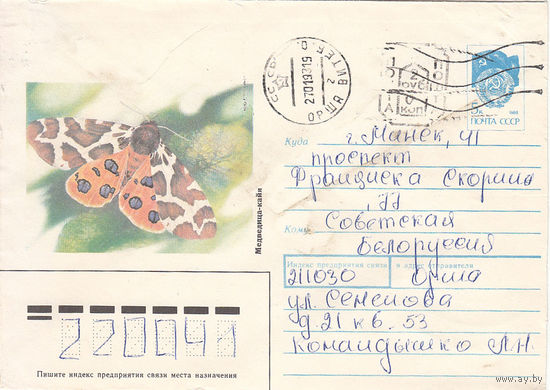 ВИТЕБ. О.
270193 19
ОРША 2
2
РУБ
0
КОП
5к
1988
ПОЧТА СССР
Медведица-кайя
Куда г. Минск, 41
проспект
Франциска Скорины
, 77
Советская
Кому
Белоруссия
Индекс предприятия связи и адрес отправителя
211030 Орша
ул. Семенова
д. 21 кв. 53
Командышко Л.Н.
220041
Пишите индекс предприятия связи места назначения
www.ay.by